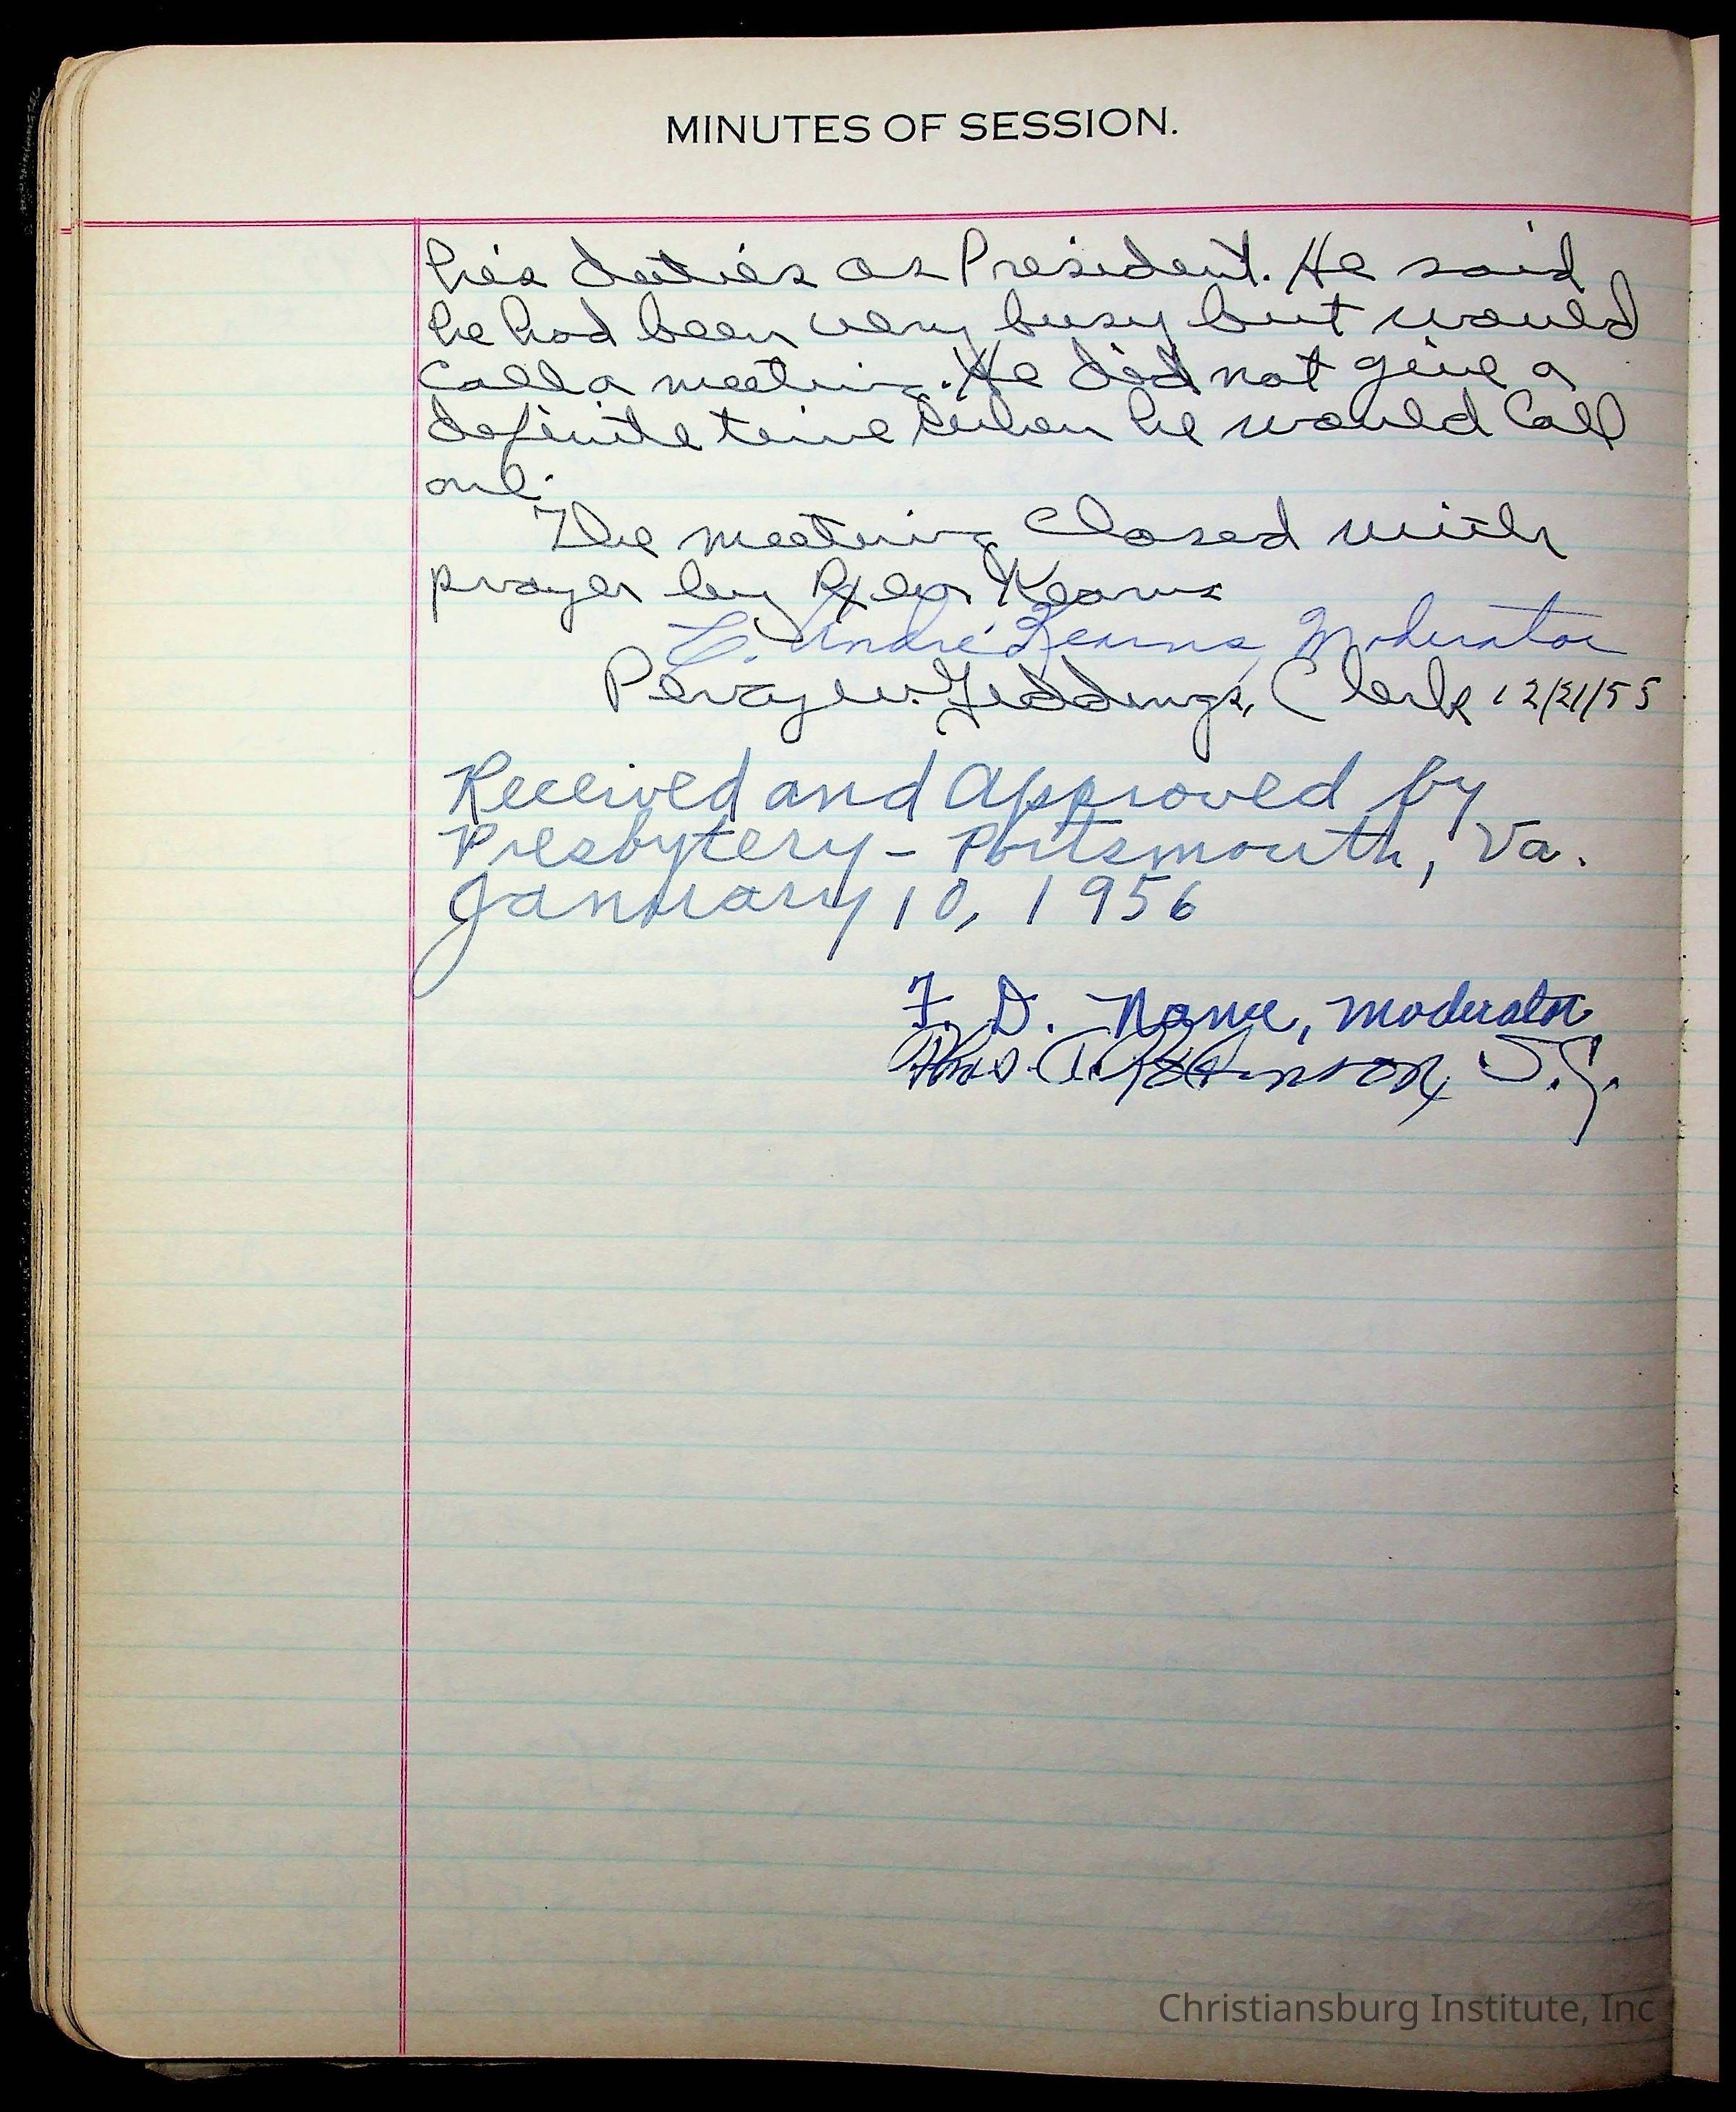 MINUTES OF SESSION.
his duties as President. He said
he had been very busy but would
call a meeting. He did not give a
definite time when he would Call
one.
The meeting Closed with
prayer by Rev Kearns
C. André Kearns, Moderator
Percy W. Giddings, Clerk 12/21/55
Received and Approved by
Presbytery - Portsmouth, Va.
January 10, 1956
F. D. Nance, moderator
Thos. A. Robinson, S.C.
Christiansburg Institute, Inc